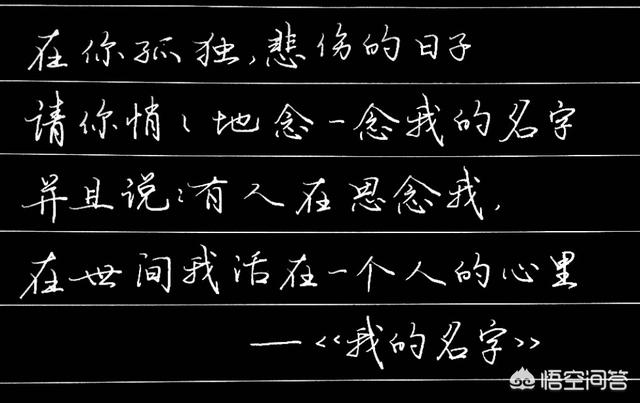 在你孤独,悲伤的日子
请你悄悄地念一念我的名字
并且说:有人在思念我,
在世间我活在一个人的心里
—《我的名字》
悟空问答